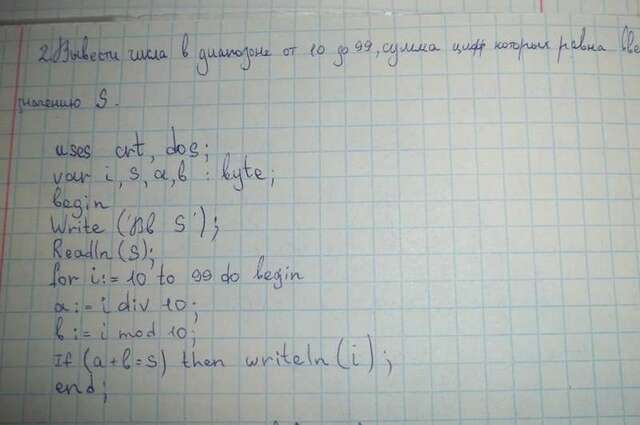 2. Вывести числа в диапозоне от 10 до 99, сумма цифр которых равна Вве
значению S.
uses crt, dos;
var i, s, a, b : byte;
begin
Write ('Вв S');
Readln (S);
for i:= 10 to 99 do begin
a:= i div 10;
b:= i mod 10;
If (a+b=s) then writeln (i);
end;